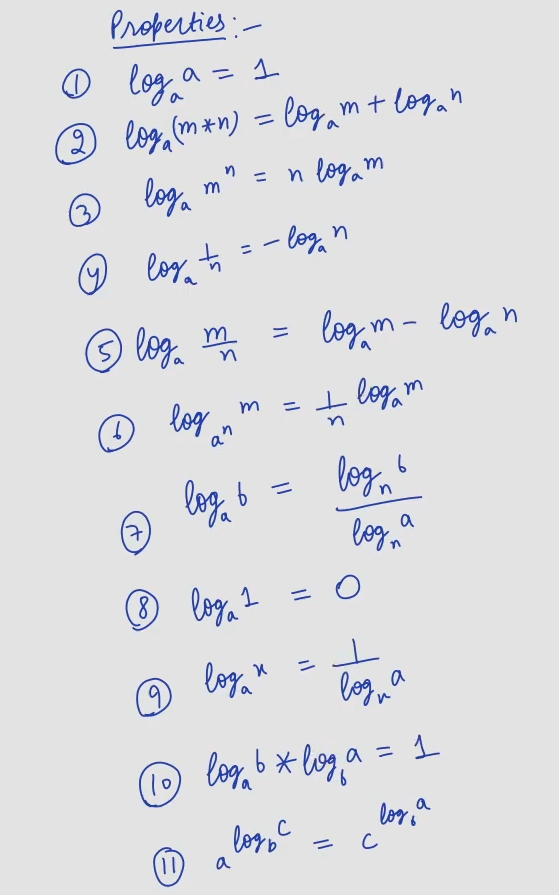 Properties :-
① logₐ a = 1
② logₐ (m*n) = logₐ m + logₐ n
③ logₐ mⁿ = n logₐ m
④ logₐ 1/n = - logₐ n
⑤ logₐ m/n = logₐ m - logₐ n
⑥ log_{aⁿ} m = 1/n logₐ m
⑦ logₐ b = logₙ b / logₙ a
⑧ logₐ 1 = 0
⑨ logₐ x = 1 / logₓ a
⑩ logₐ b * log_b a = 1
⑪ a^{log_b c} = c^{log_b a}